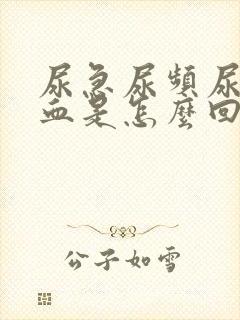 尿急尿頻尿
血是怎麼回
公子如雪